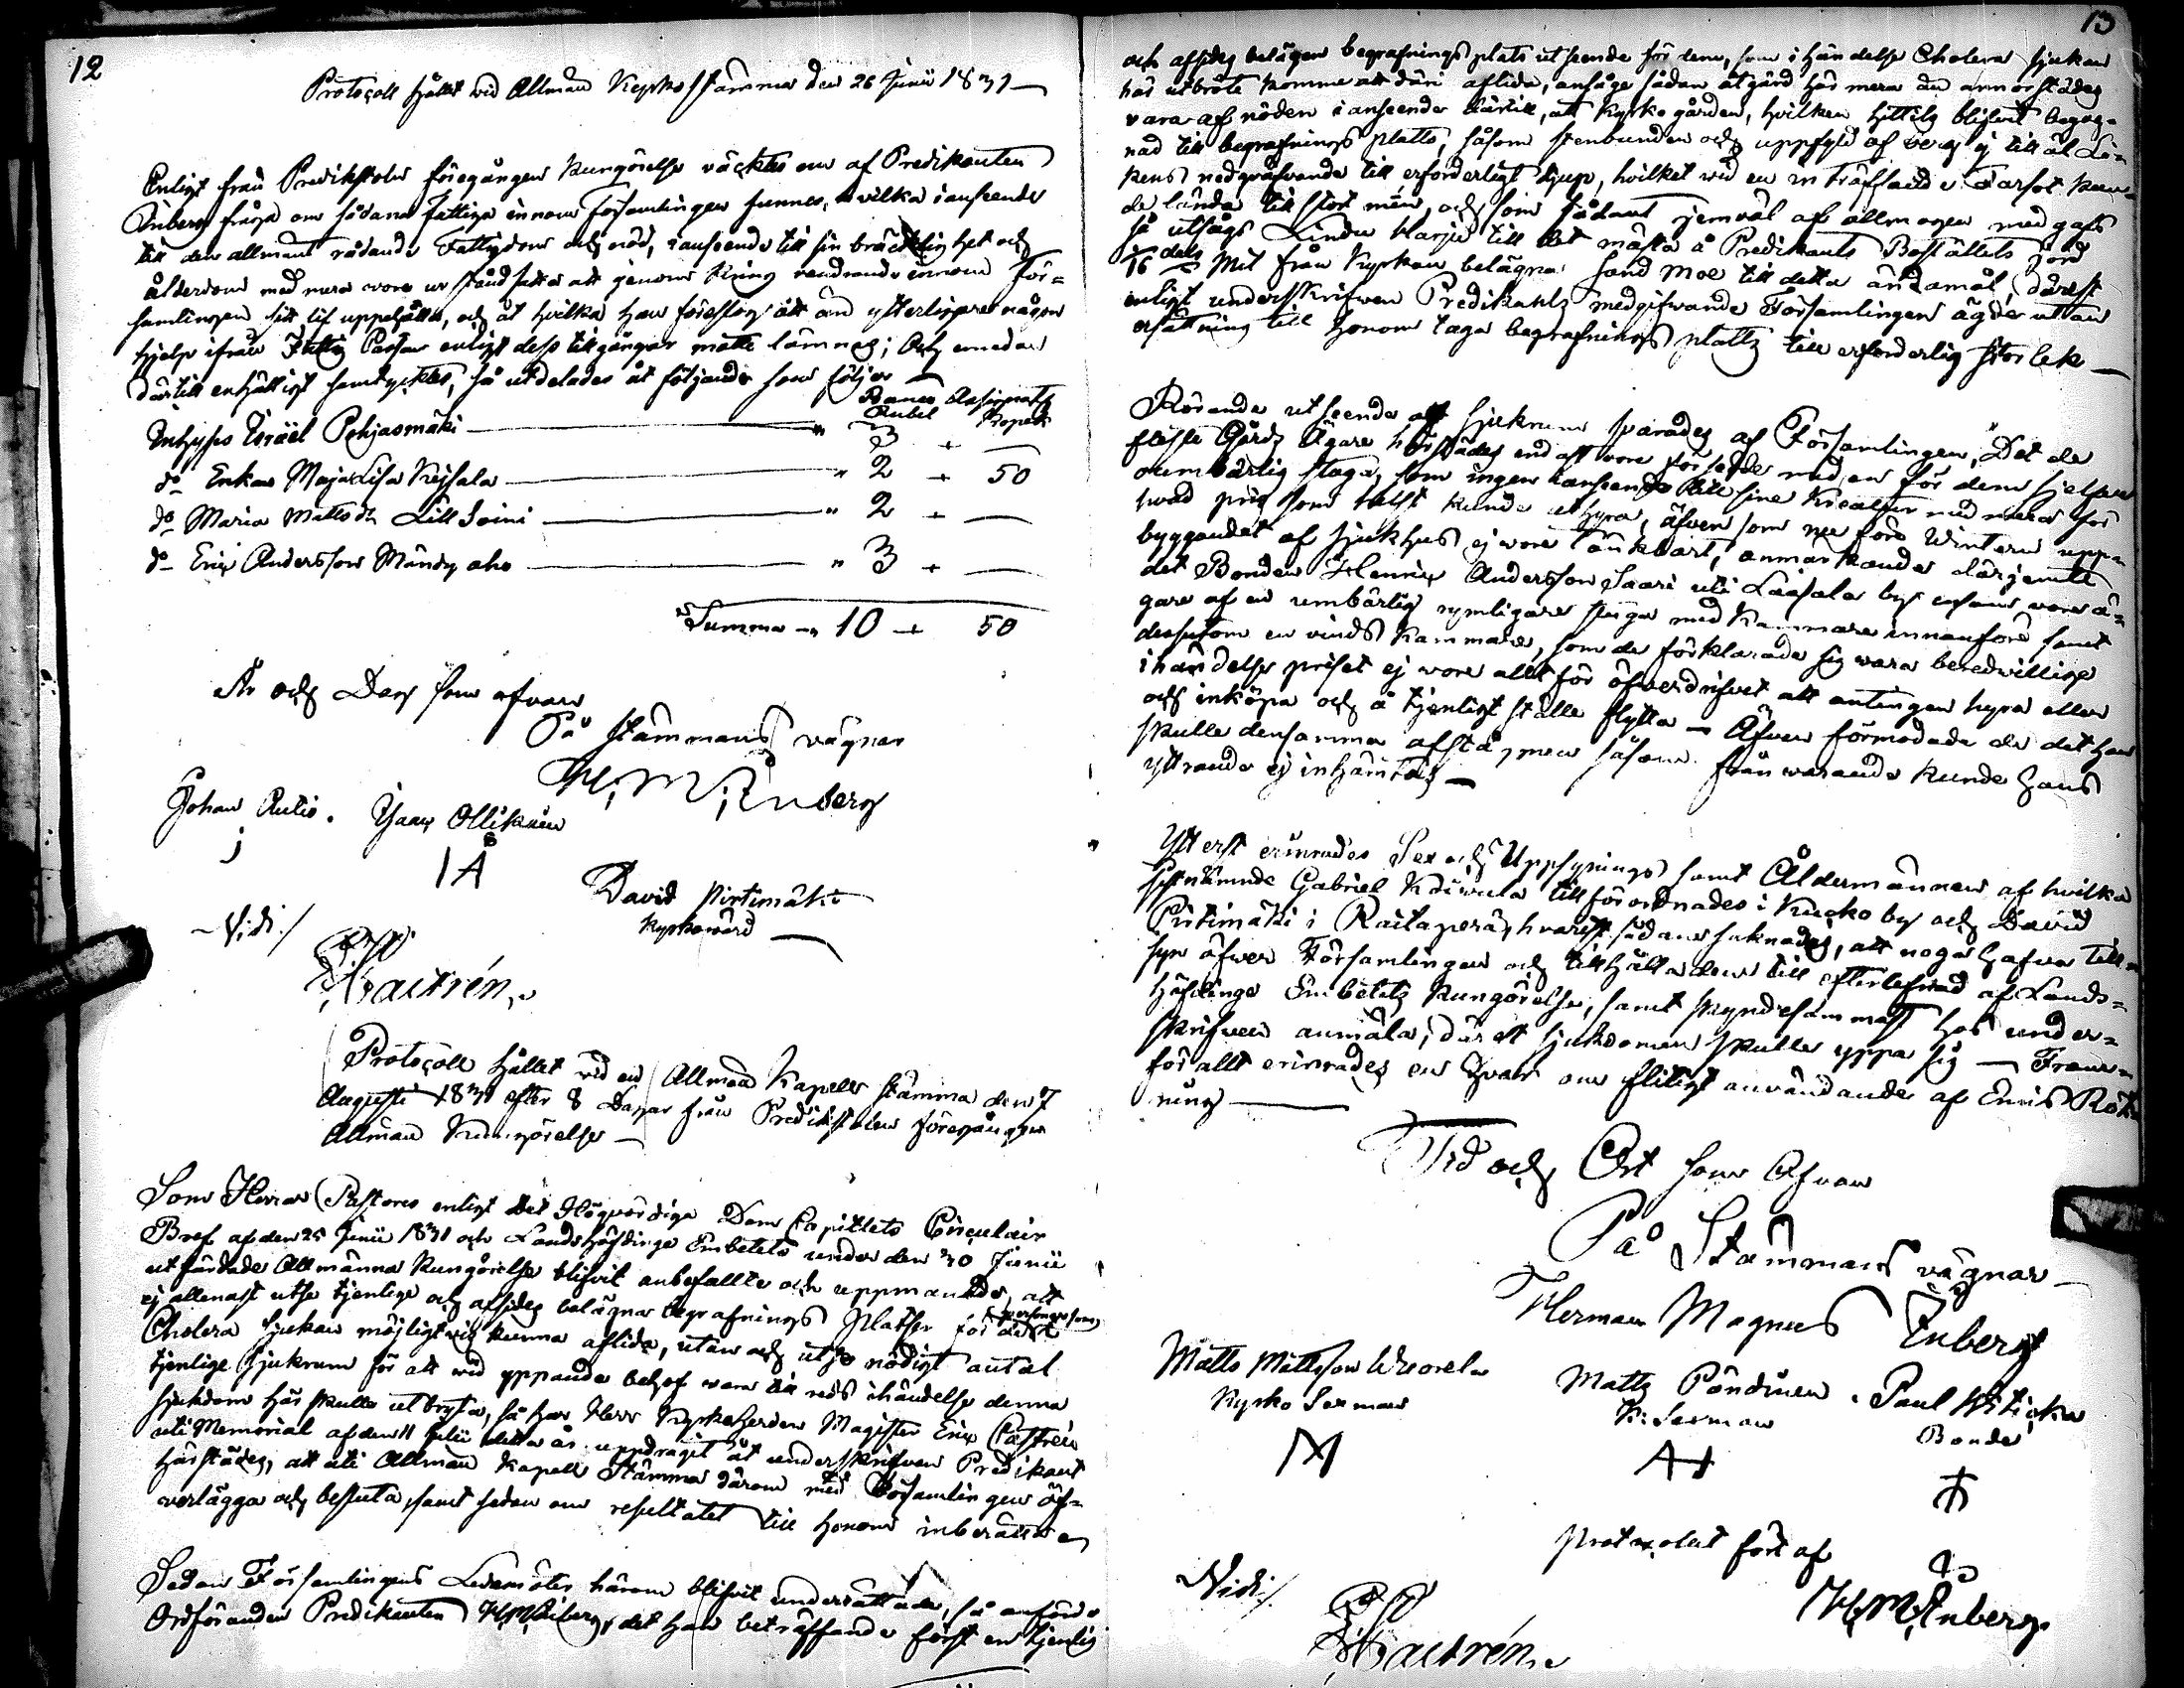 12
Protocoll hållit wid Allmän Kyrko stämma den 26 Junii 1831 —
Enligt från Predikstolen föregången Kungörelse väcktes nu af Predikanten
Enberg fråga om sådana fattiga innom Församlingen funnes, hvilka i anseende
till den allmänt rådande Fattigdom och nöd, i anseende till sin bräcklighet och
ålderdom med mera vore ur stånd satta att genom kring vandrande innom För=
samlingen sitt lif uppehålla, och åt hvilka han föreslog att än ytterligare någon
hjelp ifrån Fattig Cassan enligt dess tillgångar måtte lämnas; Och emedan
därtill enhälligt samtycktes, så utdelades åt följande som följer —
Banco Assignats
Rubel Kopek
Inhyses Israël Pohjasmäki — " 3 " —
do Enkan Maja Lisa Kejsala — " 2 " 50
do Maria Mattsdr Lill Soini — " 2 " —
do Eric Andersson Mändy aho — " 3 " —
Summa " 10 " 50
År och Dag som ofvan
På Stämmans vägnar
H. M. Enberg
Johan Autio. Isaac Ollikain
IA
David Pirtimäki
Kyrkowärd
Vidi /
Castrén.
Protocoll hållet vid en Allmän Kapell stämma den 7
Augusti 1831 efter 8 Dagar från Predikstolen föregången
Allmän Kungörelse —
Som Herrar Pastores enligt det Högvördiga Dom Capitlets Circulair
Bref af den 25 Junii 1831 och Landshöfdinge Embetets under den 30 Junii
utfärdade Allmänna Kungörelse blifvit anbefallte och uppmanade, att
ej allenast utse tjenlige och afsides belägna begrafnings platser för dest personer som
Cholera sjukan möjligtvis kunna aflida, utan och utse nödigt antal
tjenlige sjukrum för att vid yppande behof vara till reds i händelse denna
sjukdom här skulle utbryta, så har Herr Kyrkoherden Magister Eric Castrén
uti Memorial af den 11 Julii detta år uppdragit åt underskrifven Predikant
härstädes, att uti Allmän Kapell Stämma därom med Församlingen öf=
verlägga och besluta, samt sedan om resultatet till honom inberätta
Sedan Församlingens Ledamöter härom blifvit underrättade, så anförde
Ordföranden Predikanten H M Enberg, det han beträffande först en tjenlig
13
och afsides belägen begrafnings plats utseende för dem, som i händelse Cholera sjukan
här utbröte komme att däri aflida, ansåge sådan åtgärd här mera än annorstädes
vara af nöden i anseende därtill, att Kyrko gården, hvilken hittils blifvit begag=
nad till begrafnings platts, såsom stenbunden och uppfyld af berg ej till åt Li=
kens nedgräfvande till erforderligt djup, hvilket wid en inträffande Farsot kun=
de lända till stort mén, och som sådant jemväl af allmogen medgafs
så utsågs Lindu Harju till det mästa å Predikants Boställets jord
1/16 dels Mil från Kyrkan belägna sand moe till detta ändamål, därest
enligt underskrifven Predikants medgifwande Församlingen ägde utan
ersättning till honom taga begrafnings platts till erforderlig storlek —
Rörande utseende af sjukrum svarades af Församlingen, Det de
fläste Gårds Ägare härstädes endast vore försedde med en för dem sjelfve
oumbärlig stuga, som ingen i anseende till sine Kreatur med mera för
hvad pris som hälst kunde uthyra, äfven som nu före Wintern upp=
byggandet af sjukhus ej vore tänkbart, anmärkande därjemte
det Bonden Henric Andersson Saari uti Laasala by ensam vore ä=
gare af en umbärlig rymligare stuga med kammare innanföre samt
dessutom en vinds kammare, som de förklarade sig vara beredwillige
i händelse priset ej vore allt för öfverdrifvet att antingen hyra eller
och inköpa och å tjenligt ställe flytta — Äfven förmodade de det han
skulle densamma afstå, men såsom frånvarande kunde hans
yttrande ej inhämtas —
Ytterst erinrades Sex och Uppsynings samt Åldermännen af hvilka
sistnämnde Gabriel Koiwula tillförordnades i Kucko by och David
Pirtimäki i Raitaperä, hvarest sådane saknades, att noga hafva till=
syn öfver Församlingen och tillhålla dem till efterlefnad af Lands=
höfdinge Embetets Kungörelse, samt skyndesammast hos under=
skrifven anmäla, därest sjukdomen skulle yppa sig — Fram=
för allt erinrades en hvar om flitigt användande af Enris Rök=
ning —
Tid och Ort som Ofvan
På Stämmans vägnar —
Herman Magnus Enberg
Matts Mattsson Wuorela
Kyrko Sexman
Matts Pöndinen
K: Sexman
Paul
Bonde
Protocollet fört af
H. M. Enberg
Vidi /.
Castrén.